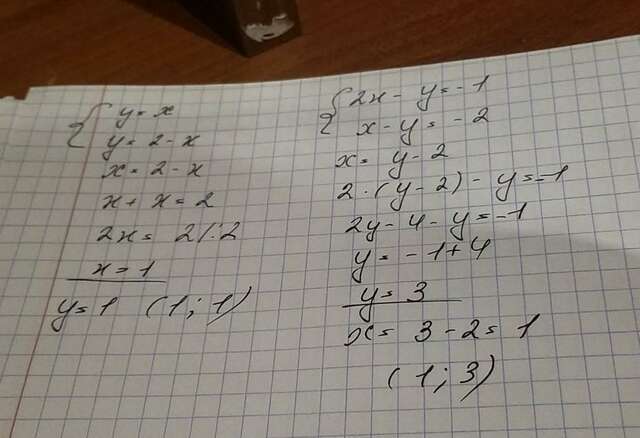 { y = x
y = 2 - x
x = 2 - x
x + x = 2
2x = 2 /:2
x = 1
y = 1 (1; 1)
{ 2x - y = -1
x - y = -2
x = y - 2
2 · (y - 2) - y = -1
2y - 4 - y = -1
y = -1 + 4
y = 3
x = 3 - 2 = 1
(1; 3)